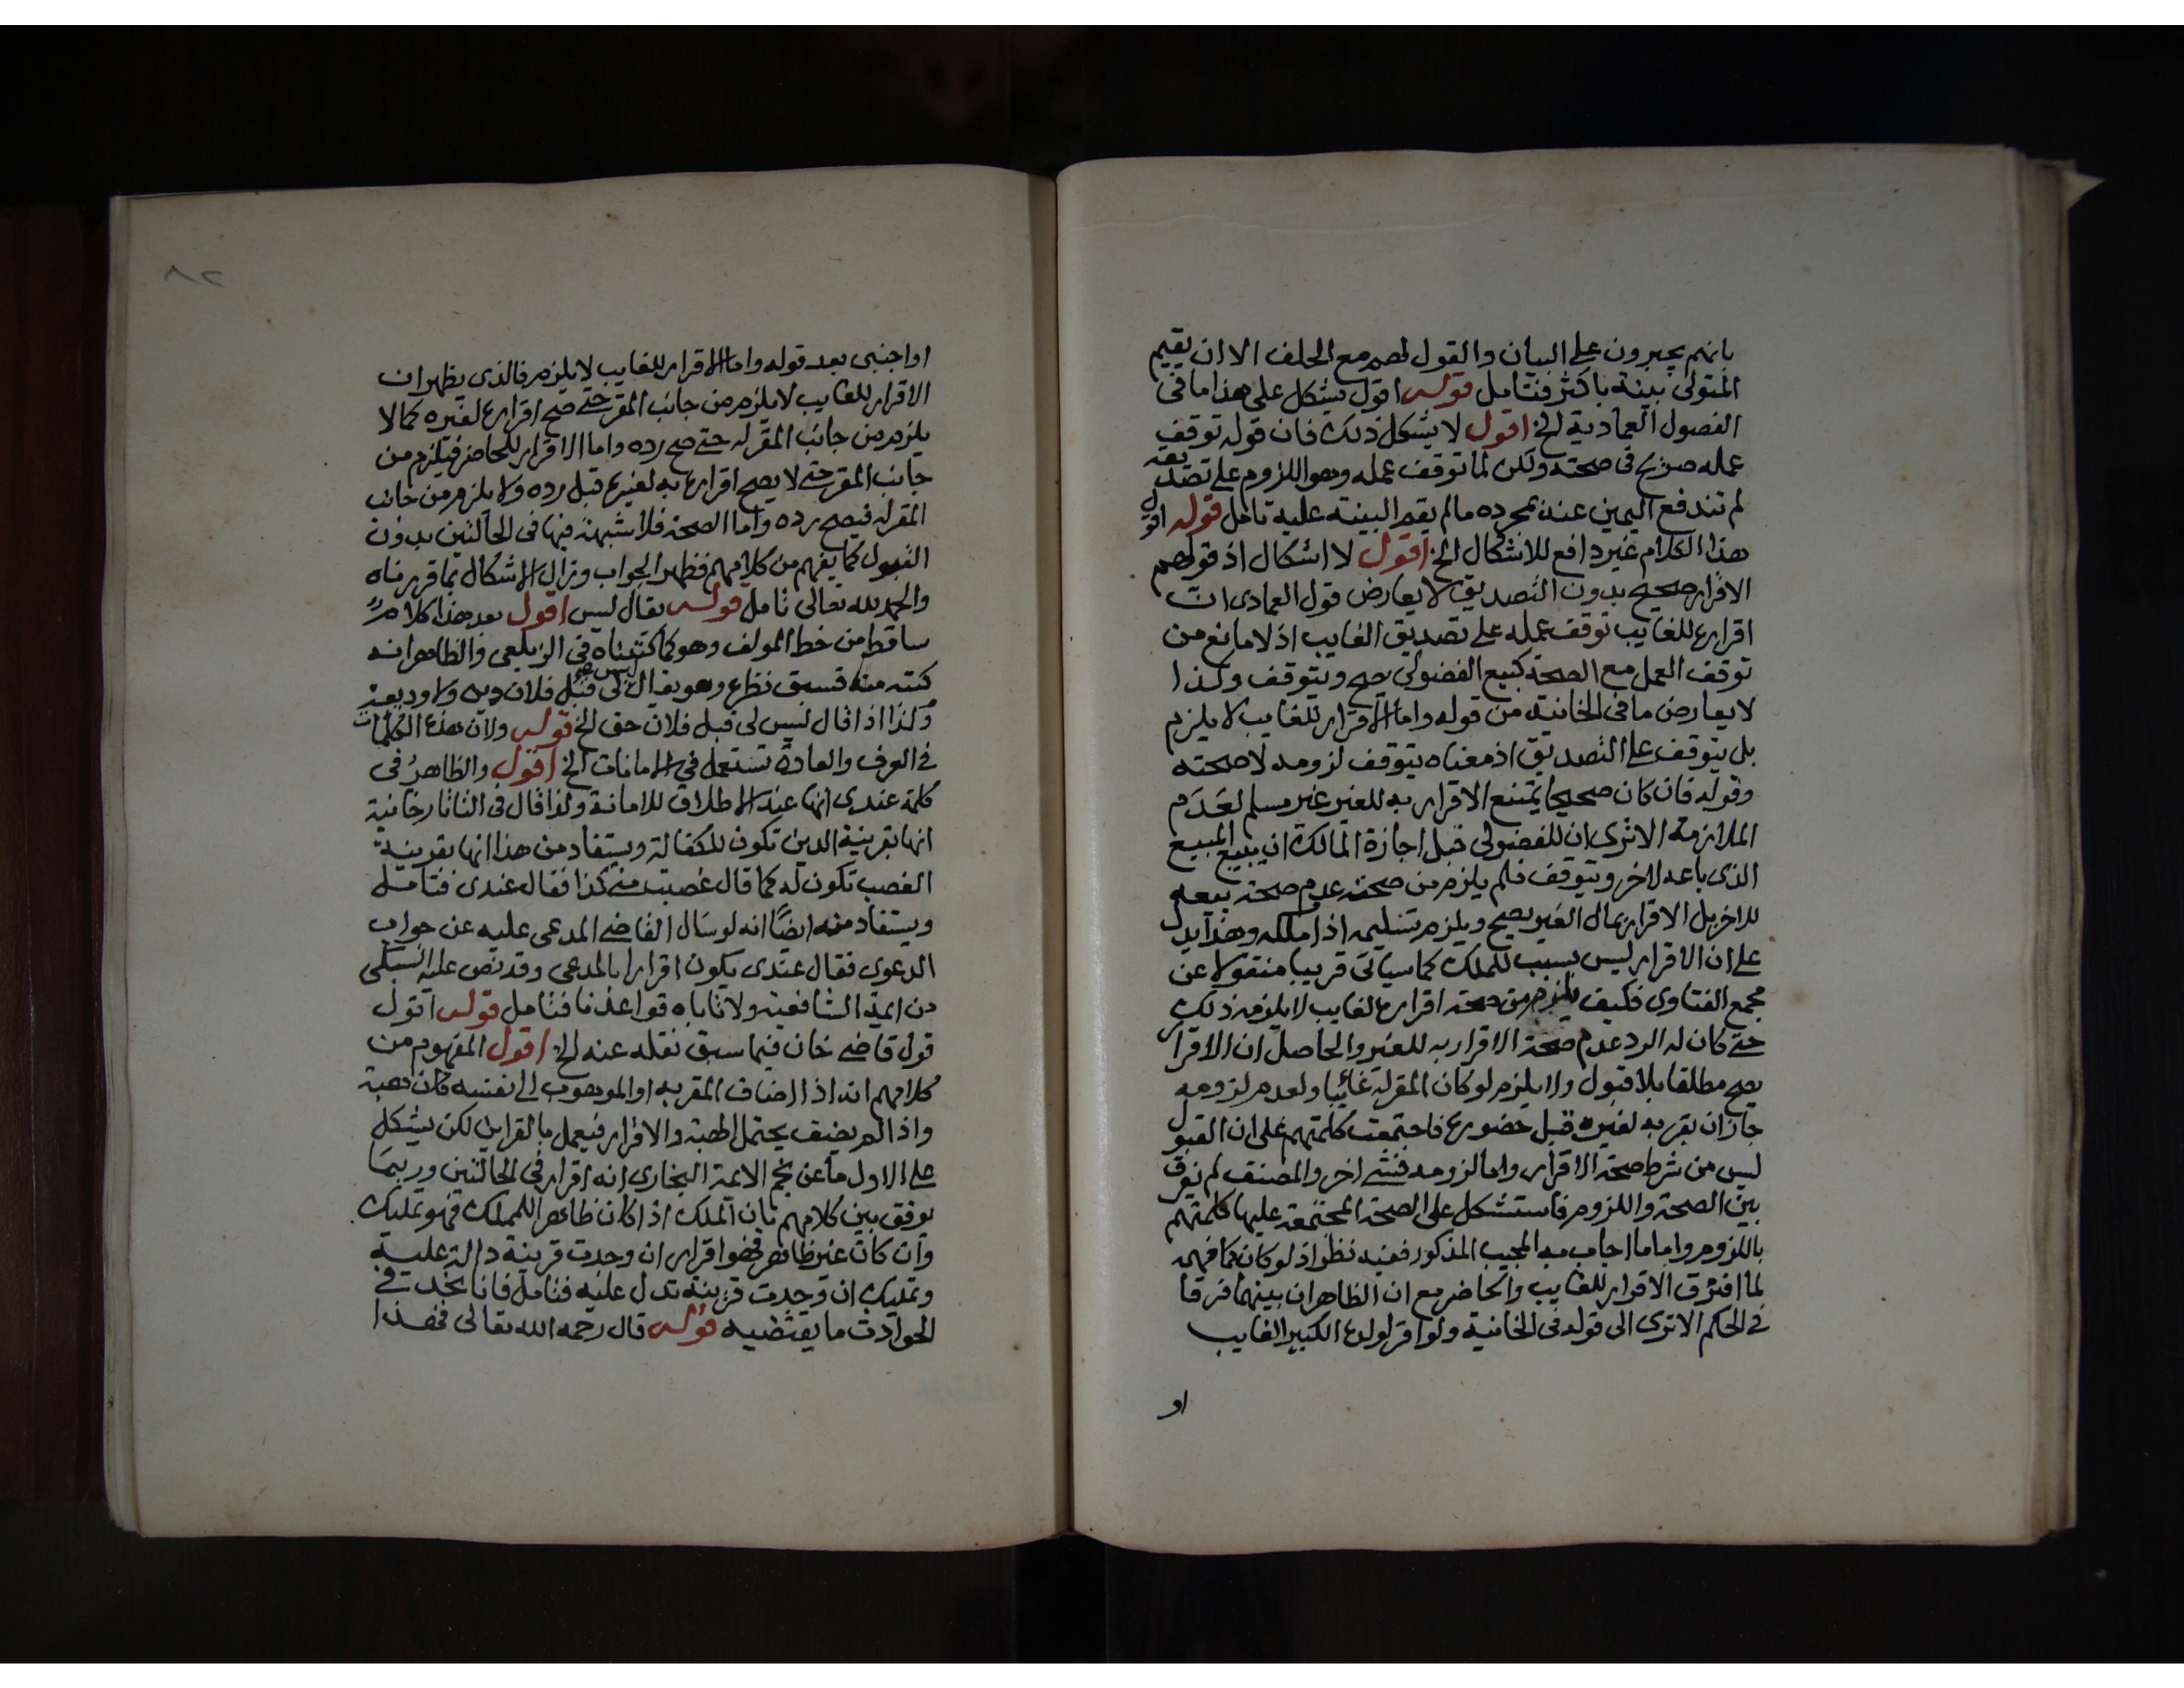 بانهم يجبرون على البيان والقول لهم مع الحلف الا ان يقيم
المتولى بينة باكثر فتامل قوله اقول يشكل على هذا ما فى
الفصول العمادية الخ اقول لا يشكل ذلك فان قوله توقف
عمله صريح فى صحته ولكن لما توقف عمله وهو اللزوم على تصديقه
لم تندفع اليمين عنه بمجرده ما لم يقم البينة عليه تامل قوله اقول
هذا الكلام غير دافع للاشكال الخ اقول لا اشكال اذ قولهم
الاقرار صحيح بدون التصديق لا يعارض قول العمادى ان
اقراره للغايب توقف عمله على تصديق الغايب اذ لا مانع من
توقف العمل مع الصحة كبيع الفضولى يصح ويتوقف وكذا
لا يعارض ما فى الخانية من قوله واما الاقرار للغايب لا يلزم
بل يتوقف على التصديق اذ معناه يتوقف لزومه لا صحته
وقوله فان كان صحيحا يمتنع الاقرار به للغير غير مسلم لعدم
الملازمة الا ترى ان للفضولى قبل اجازة المالك ان يبيع المبيع
الذى باعه لاخر ويتوقف فلم يلزم من صحته عدم صحة بيعه
للاخر بل الاقرار بمال الغير يصح ويلزم تسليمه اذا ملكه وهذا يدل
على ان الاقرار ليس بسبب للملك كما سياتى قريبا منقولا عن
مجمع الفتاوى فكيف يلزم من صحة اقراره لغايب لا يلزمه ذلك
حتى كان له الرد عدم صحة الاقرار به للغير والحاصل ان الاقرار
يصح مطلقا بلا قبول ولا يلزم لو كان المقر له غائبا ولعدم لزومه
جاز ان يقر به لغيره قبل حضوره فاجتمعت كلمتهم على ان القبول
ليس من شرط صحة الاقرار واما لزومه فشئ اخر والمصنف لم يفرق
بين الصحة واللزوم فاستشكل على الصحة المجتمعة عليها كلمتهم
باللزوم واما ما اجاب به المجيب المذكور ففيه نظر اذ لو كان كما فهمه
لما افترق الاقرار للغايب والحاضر مع ان الظاهر ان بينهما فرقا
فى الحكم الا ترى الى قوله فى الخانية ولو اقر لولده الكبير الغايب
او
٨٢
او اجنبى بعد قوله واما الاقرار للغايب لا يلزم فالذى يظهر ان
الاقرار للغايب لا يلزم من جانب المقر حتى صح اقراره لغيره كما لا
يلزم من جانب المقر له حتى صح رده واما الاقرار للحاضر فيلزم من
جانب المقر حتى لا يصح اقراره به لغيره قبل رده ولا يلزم من جانب
المقر له فيصح رده واما الصحة فلا شبهة فيها فى الحالتين بدون
القبول كما يفهم من كلامهم فظهر الجواب وزال الاشكال بما قررناه
والحمد لله تعالى تامل قوله يقال ليس اقول بعد هذا كلام
ساقط من خط المولف وهو كما كتبناه فى الزيلعى والظاهر انه
كتبه منه فسبق نظره وهو يقال ليس لى قبل فلان دين ولا وديعة
وكذا اذا قال ليس لى قبل فلان حق الخ قوله ولان هذه الكلمات
فى العرف والعادة تستعمل فى الامانات الخ اقول والظاهر فى
كلمة عندى انها عند الاطلاق للامانة ولذا قال فى التاتارخانية
انها بقرينة الدين تكون للكفالة ويستفاد من هذا انها بقرينة
الغصب تكون له كما قال غصبت منى كذا فقال عندى فتامله
ويستفاد منه ايضًا انه لو سال القاضى المدعى عليه عن جواب
الدعوى فقال عندى يكون اقرارا بالمدعى وقد نص عليه السبكى
من ايمة الشافعية ولا تاباه قواعدنا فتامل قوله اقول
قول قاضى خان فيما سبق نقله عنه الخ اقول المفهوم من
كلامهم انه اذا اضاف المقر به او الموهوب الى نفسه كان هبة
واذا لم يضف يحتمل الهبة والاقرار فيعمل بالقراين لكن يشكل
على الاول ما عن نجم الائمة البخارى انه اقرار فى الحالتين وربما
يوفق بين كلامهم بان الملك اذا كان ظاهرا للمملك فهو تمليك
وان كان غير ظاهر فهو اقرار ان وجدت قرينة دالة عليه
وتمليك ان وجدت قرينة تدل عليه فتامل فانا نجد فى
الحوادث ما يقتضيه قوله قال رحمه الله تعالى فهذا